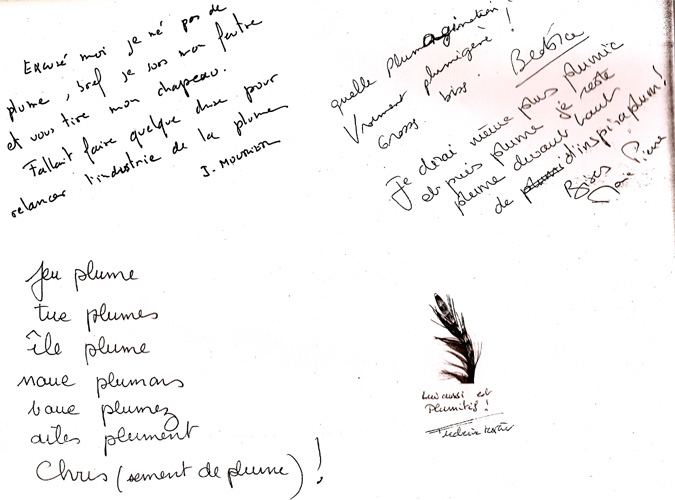 Excusé moi je né pas de
plume, bref je sors mon feutre
et vous tire mon chapeau.
Fallait faire quelque chose pour
relancer l'industrie de la plume
J. MOUNIER
quelle Plumagination !
Vraiment plumigère !
Gross biss.
Beatrice
Je dirai même plus plumic
et puis plume je reste
plume devant tant
de d'inspiraplum!
Bises
Marie Pierre
Jeu plume
tue plumes
île plume
noue plumons
voue plumez
ailes plument
Chris (sement de plume) !
Lui aussi est
Plumitif !